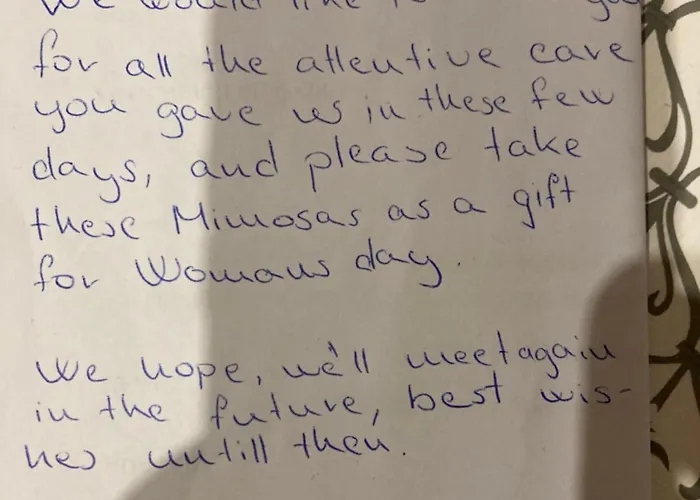 We would like to
for all the attentive care
you gave us in these few
days, and please take
these Mimosas as a gift
for Womans day.
We hope, we'll meet again
in the future, best wis-
hes untill then.